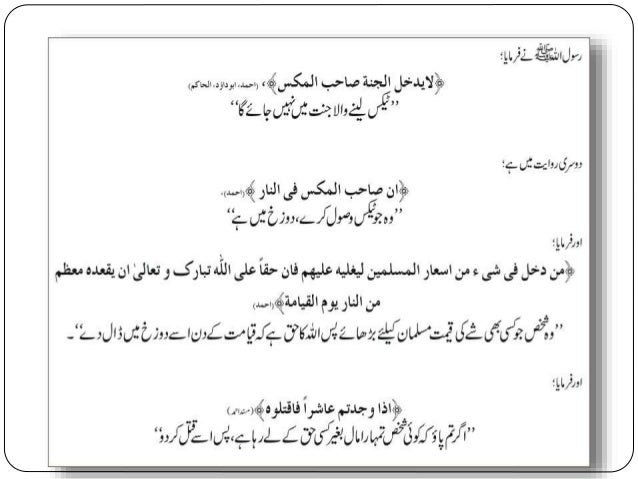 رسول اللہ ﷺ نے فرمایا؛
﴿لا یدخل الجنة صاحب المکس﴾، (احمد، ابوداؤد، الحاکم)
’’ٹیکس لینے والا جنت میں نہیں جائے گا‘‘
دوسری روایت میں ہے؛
﴿ان صاحب المکس فی النار﴾ (احمد)،
’’وہ جو ٹیکس وصول کرے، دوزخ میں ہے‘‘
اور فرمایا؛
﴿من دخل فی شیء من اسعار المسلمین لیغلیه علیهم فان حقاً علی اللّٰه تبارک و تعالیٰ ان یقعده معظم
من النار یوم القیامة﴾ (احمد)
’’وہ شخص جو کسی بھی شے کی قیمت مسلمان کیلئے بڑھائے پس اللہ کا حق ہے کہ قیامت کے دن اسے دوزخ میں ڈال دے‘‘۔
اور فرمایا؛
﴿اذا وجدتم عاشراً فاقتلوه﴾ (مسند احمد)
’’اگر تم پاؤ کہ کوئی شخص تمہارا مال بغیر کسی حق کے لے رہا ہے، پس اسے قتل کر دو‘‘